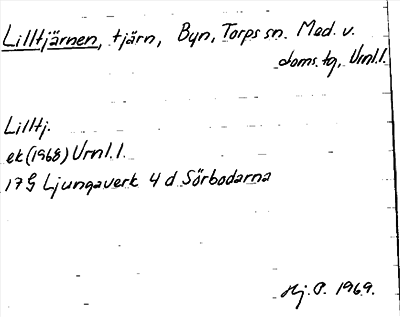 Lilltjärnen, tjärn, Byn, Torps sn. Med. v.
doms. tg, Vrnl.l.
Lilltj.
ek (1968) Vrnl.l.
17G Ljungaverk 4 d Sörbodarna
Hj. P. 1969.